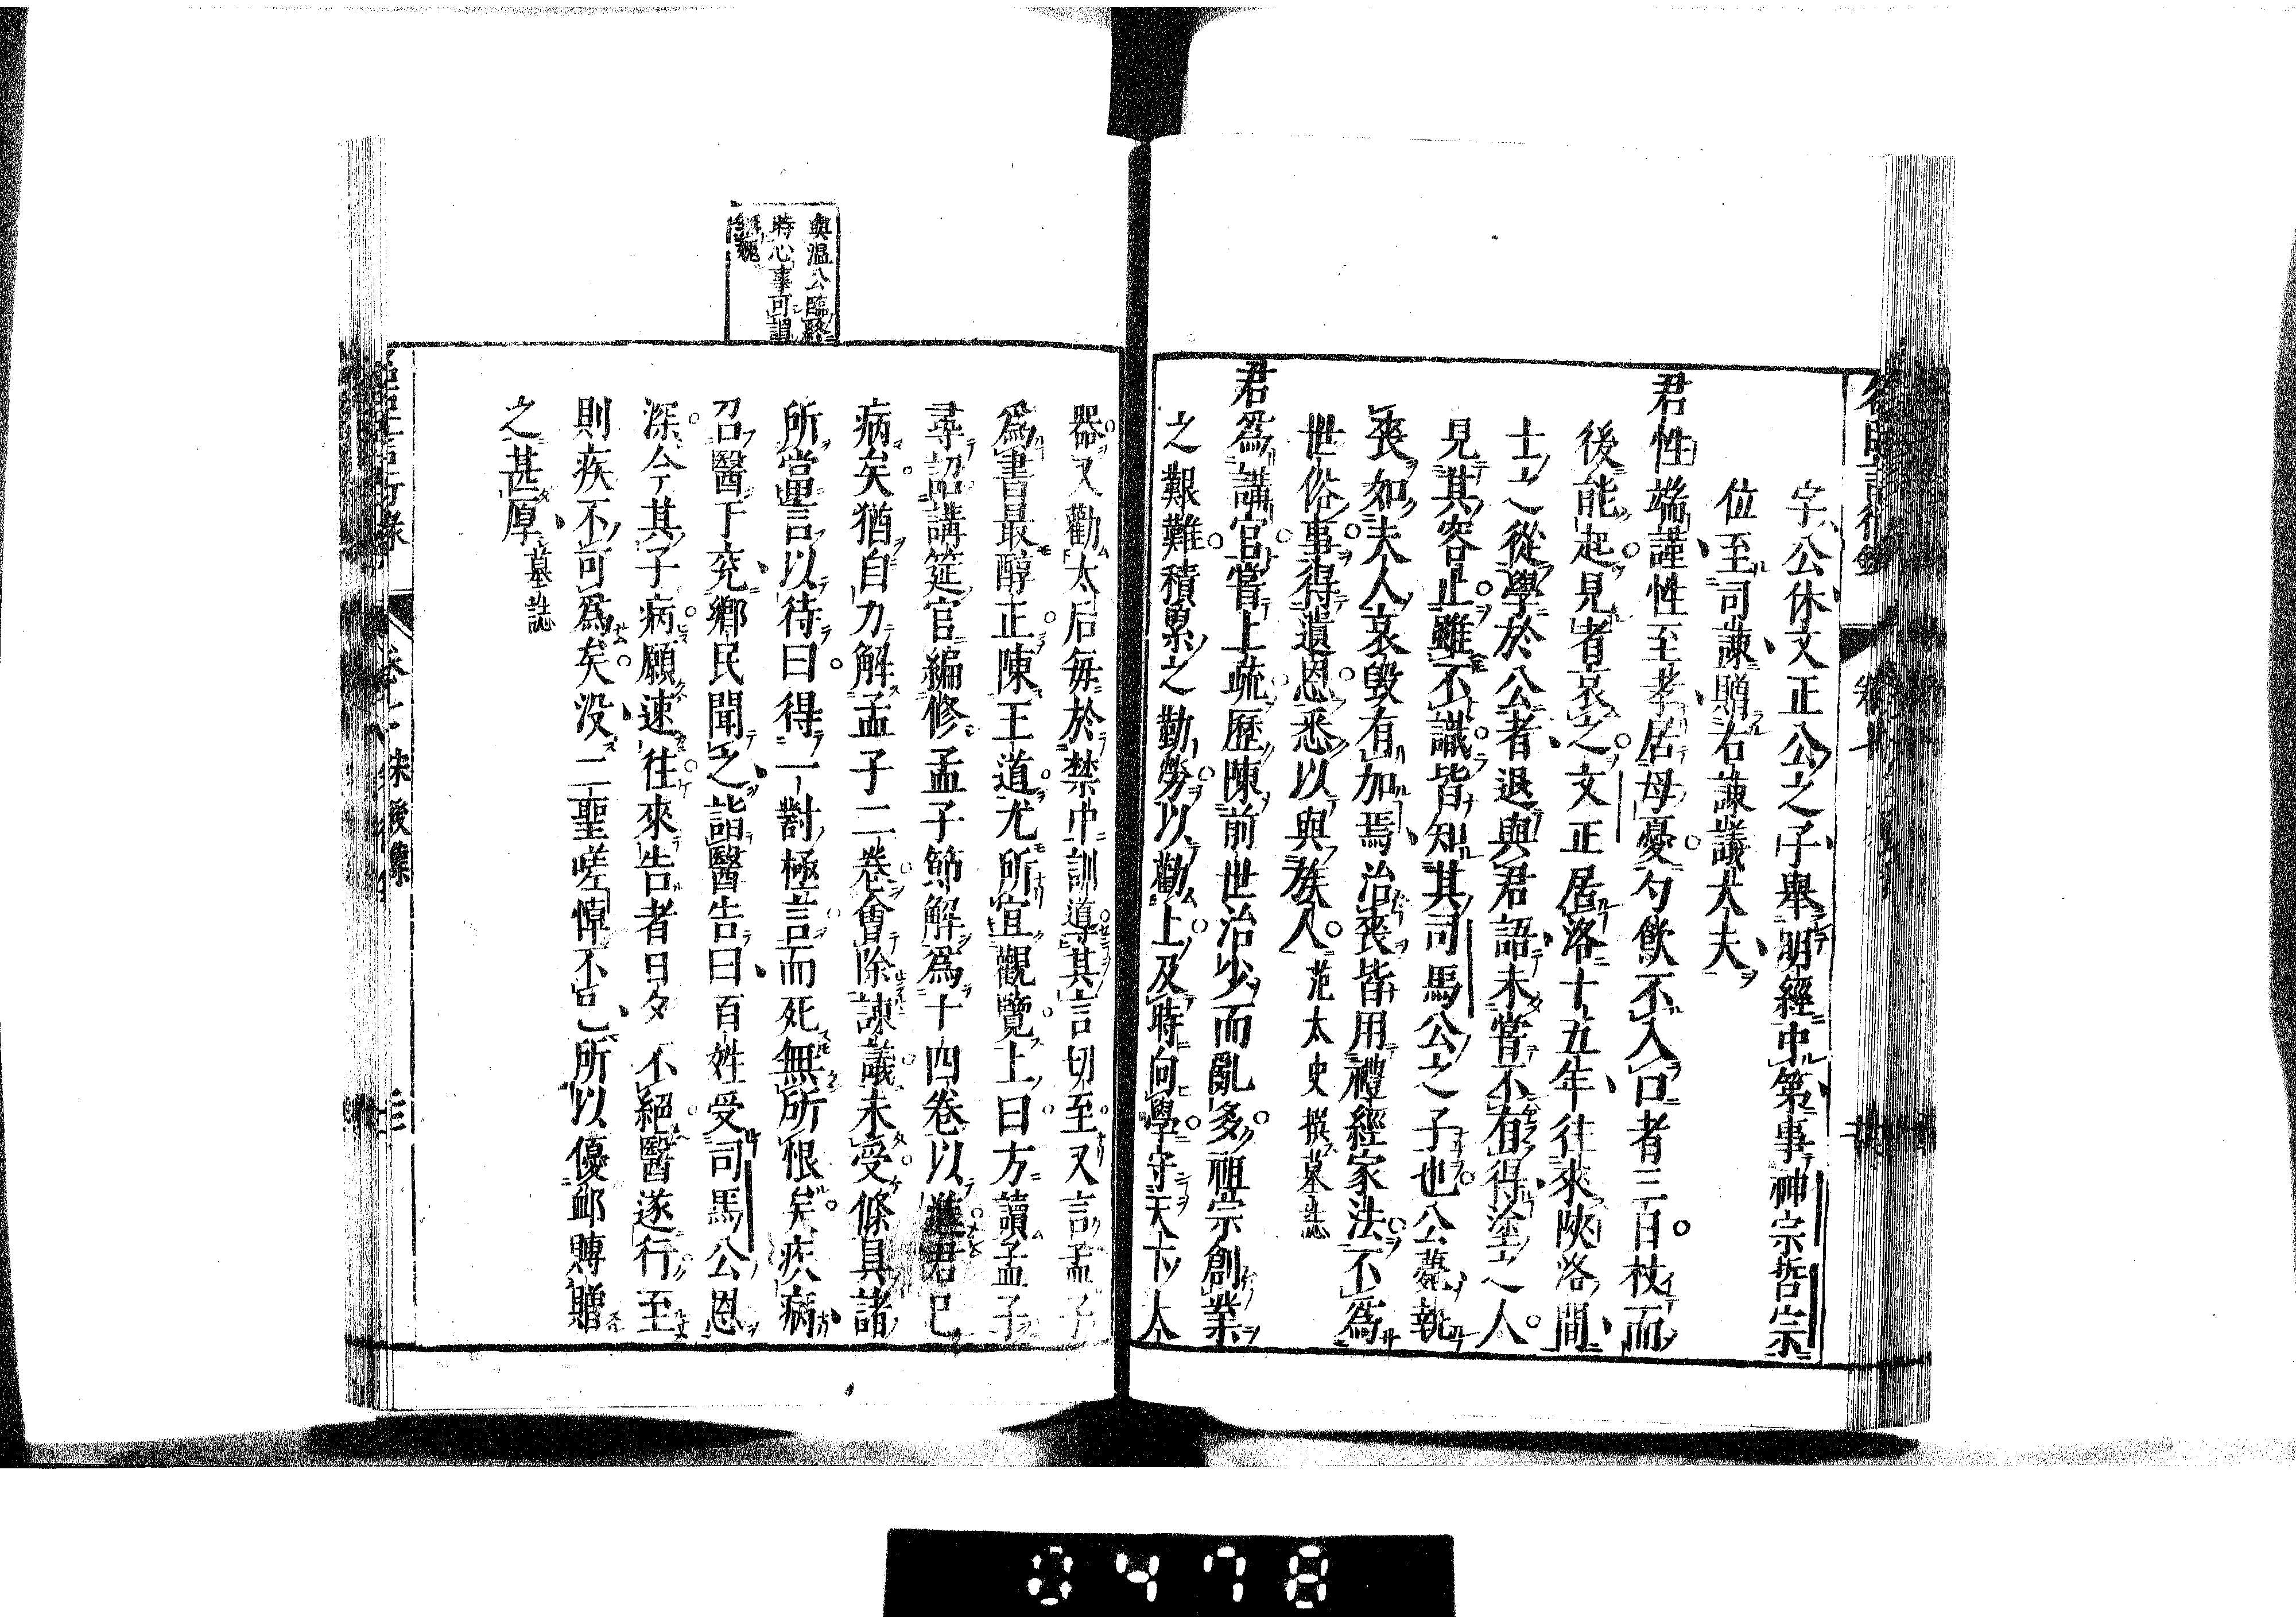 字公休文正公之子舉明經中第事神宗哲宗
位至司諫贈右諫議大夫
君性端謹性至孝居母憂勺飲不入口者三日杖而
後能起見者哀之文正居洛十五年往來陝洛間
士之從學於公者退與君語未嘗不有得塗之人
見其容止雖不識皆知其司馬公之子也公薨執
喪如夫人哀毀有加焉治喪皆用禮經家法不為
世俗事得遺恩悉以與族人 范太史撰墓誌
君為講官嘗上疏歷陳前世治少而亂多祖宗創業
之艱難積累之勤勞以勸上及時向學守天下大
器又勸太后每於禁中訓導其言切至又言孟子
為書最醇正陳王道尤所宜觀覽上曰方讀孟子
尋詔講筵官編修孟子節解為十四卷以進君已
病矣猶自力解孟子二卷會除諫議未受條具諸
所當言以待曰得一對極言而死無所恨矣疾病
召醫于兗鄉民聞之詣醫告曰百姓受司馬公恩
深今其子病願速往來告者日夕不絕醫遂行至
則疾不可為矣沒二聖嗟悼不已所以優卹賻贈
之甚厚 墓誌
與溫公臨歿
時心事可謂
卷十 後集
0478